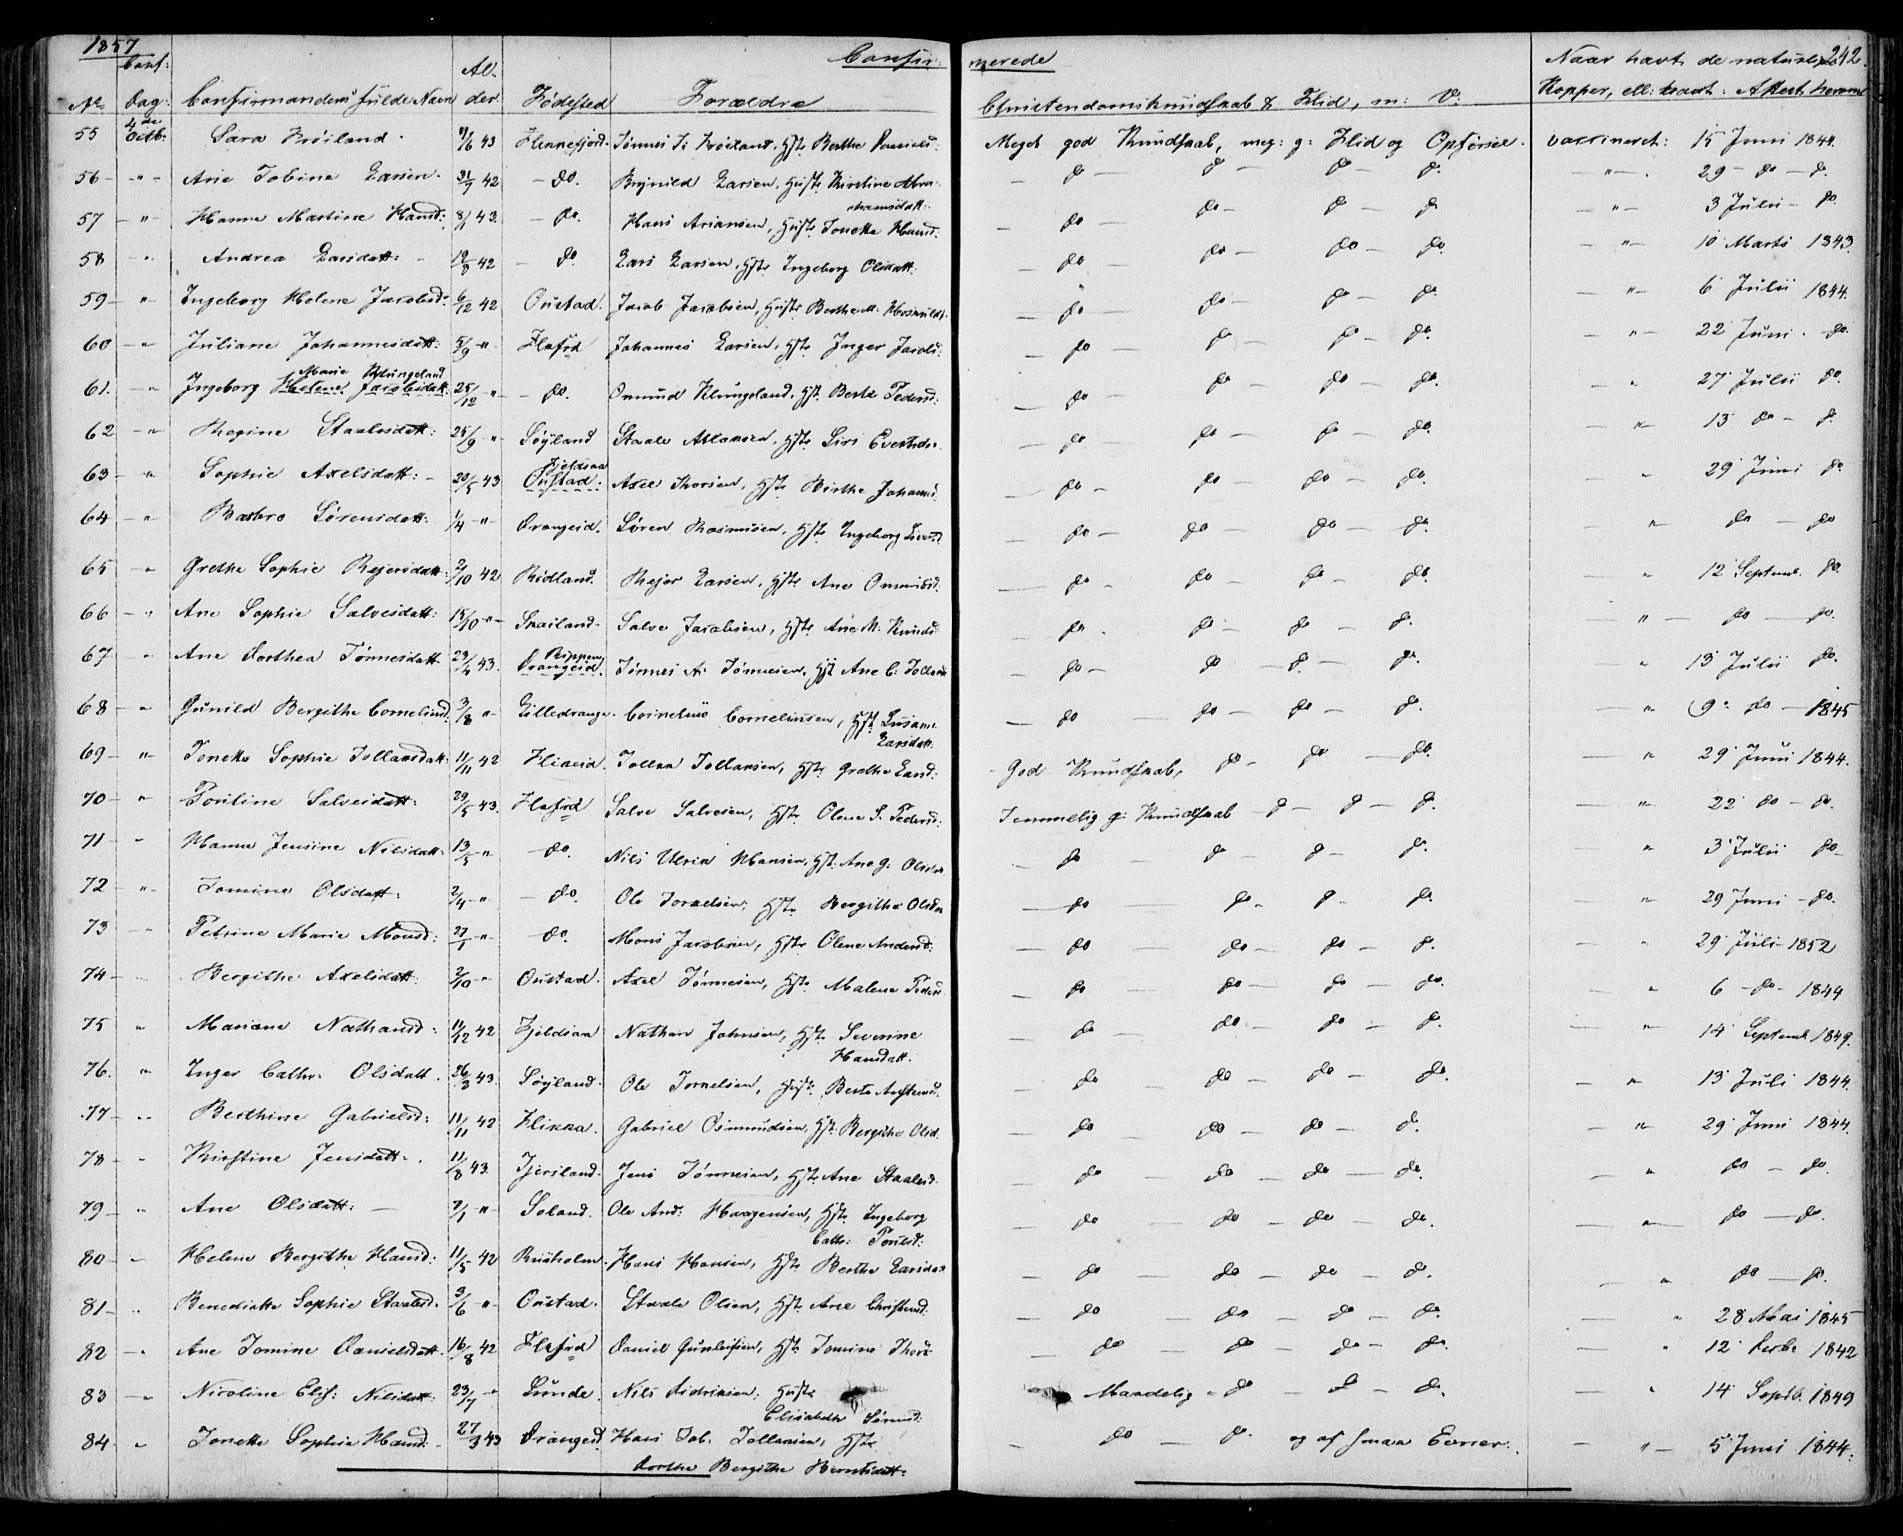 1857 Confir- merede 242.
No Conf: Dag: Confirmandens fulde Navn Al- der Fødested Forældre Christendomskundskab & Flid, m: V: Naar havt de naturlige Kopper, ell: vacc: Attest herom
55 4de Octb: Sara Frøiland 43 Flekkefjord Tønnes T: Frøiland, Hstr: Berthe Daniels: Meget god Kundskab, meg: g: Flid og Opførsel. vaccineret: 15 Juni 1844.
56 - " - Ane Tobine Larsen 42 - do. Larsen, Hustr: Kirstine Abra- hamsdatt: - do - do - do - do. - " - 29 - do - do.
57 - " - Hanne Martine Hansd: 8/1 43. - do. Hans Ariansen, Hustr. Tonette Hansd: - do - do - do - do - " - 3 Julii - do.
58 - " Andrea Larsdatt: 42 - do. Lars Larsen, Hstr. Ingeborg Olsdatt: - do - do - do - do - " - 10 Marts 1843.
59 - " Ingeborg Helene Jacobsd: 6/12 42 Oustad. Jacob Jacobsen, Hustr Berthe M. - do - do - do - do. - " - 6 Julii 1844.
60 - " Juliane Johannesdatt: 5/9 - " Flefrd Johannes Larsen, Hstr. Inger Jacobs: - do - do - do - do. - " - 22 Juni - do.
61. - " Ingeborg Helene Jacobsdatt: Marie Klungeland 25/12 - " - do. Omund Klungeland, Hst. Berte Pedersd: - do - do - do - do. - " 27 Julii do.
62 - " Regine Staalesdatt: 25/9 - " Søyland Staale Atlaksen, Hstr. Siri - do - do - do - do. - " 13 do - do.
63 - " Sophie Axelsdatt: - 20/5 43 Oustad. Fjeldsaa Axel Thorsen, Hstr. Birthe Johannes - do - do - do - do. " 29 Juni do.
64 - " Barbro Sørensdatt: 1/4 - " Drangeid. Søren Rasmusen, Hstr. Ingeborg - do - do - do - do. - " do - do
65 " Grethe Sophie Rejersdatt: 2/10 42 Rødland. Rejer Larsen, Hstr. Ane Omunds: - do - do - do - do. - " 12 Septemb. do.
66 - " Ane Sophie Salvesdatt: 15/10 - " Skailand. Salve Jacobsen, Hstr. Ane M. Knuds: - do - do - do - do. - " - do - do.
67 - " Ane Dorthea Tønnesdatt. 43. Drangeid. Tønnes A. Tønnesen, Hst. Ane C. Tollaks - do - do - do - do. " 13 Julii do.
68 - " Gunild Bergithe Corneliusd: 3/8 - " Lilledrange. Cornelius Corneliusen, Hst. Susane Larsdatt. - do - do - do - do. - " 9 do - 1845
69 " Tonette Sophie Tollaksdatt: 11/11 42 Flikeid. Tollak Tollaksen, Hstr. Grethe Larsd: - God Kundskab, do - do - do. - " 29 Juni 1844.
70 - " Pouline Salvesdatt: 29/5 43. Flefrd Salve Salvesen, Hstr. Olene S. Pedersd: Temmelig g: Kundskab - do - do - do. - " 22 do - do.
71 - " Hanne Jensine Nilsdatt: 13/5 - " - do. Nils Ulrik Hansen, Hst. Ane G. Olsdatt - do - do - do - do. - " 3 Julii do -
72 - " Tomine Olsdatt: 2/4 - " - do. Ole Tornelsen, Hstr. Bergithe Olsdatt - do - do - do - do. - " 29 Juni - do.
73 - " Petrine Marie Monsd: 27/1 - " - do. Mons Jacobsen, Hstr. Olene Andersd: - do - do - do - do. - " 29 Juli 1852
74 - Bergithe Axelsdatt: 2/10 - " Oustad. Axel Tønnesen, Hstr. Malene Peders: - do - do - do - do. - " 6 - do - 1844
75 " Mariane Nathansd: 11/12 42 Fjeldsaa Nathan Johnsen, Hstr. Severine Hansdatt: - do - do - do - do. - " - 14 Septemb 1849.
76. " Inger Cathr. Olsdatt. 26/3 43. Søyland. Ole Tornelsen, Hustr. Berte - do - do - do - do. - " 13 Juli 1844.
77 - " Berthine Gabrielsd: 11/11 42 Flikka. Gabriel Osmundsen, Hst. Bergithe Olsd. - do - do - do - do. - " 29 Juni 1844.
78 - " Kirstine Jensdatt: 11/8 43. Tjersland. Jens Tønnesen, Hstr. Ane Staalesd. - do - do - do - do. - " do - do.
79 - " Ane Olsdatt: - " Soland. Ole And: Haagensen, Hstr. Ingeborg Cathr: Poulsd: - do - do - do - do. - " do - do.
80 - " Helene Bergithe Hansd: 11/5 42 Hans Hansen, Hstr. Berthe Larsdatt - do - do - do - do. - " do - do.
81 - " Benedikte Sophie Staalesd. 3/6 - " Oustad. Staale Olsen, Hstr. Ane Christensd: - do - do - do - do. - " 28 Mai 1845
82 - " Ane Tomine Danielsdatt. 16/8 42 Flefrd Daniel Gunleifsen, Hstr. Tomine Thors: - do - do - do - do. - " 12 Decbr. 1842
83 - " Nicoline Elis: Nilsdatt: 23/7 - " Lunde. Nils Didriksen, Hustr. Elisabeth Sørensd: Maadelig - do - do - do. - " 14 Septb. 1849
84 - " Tonette Sophie Hansd: 27/3 43 Drangeid. Hans Tob. Tollaksen, Hstr. Dorthe Bergithe Berntsdatt: - do - do. og af smaa Evner. - " - 5 Juni 1844.